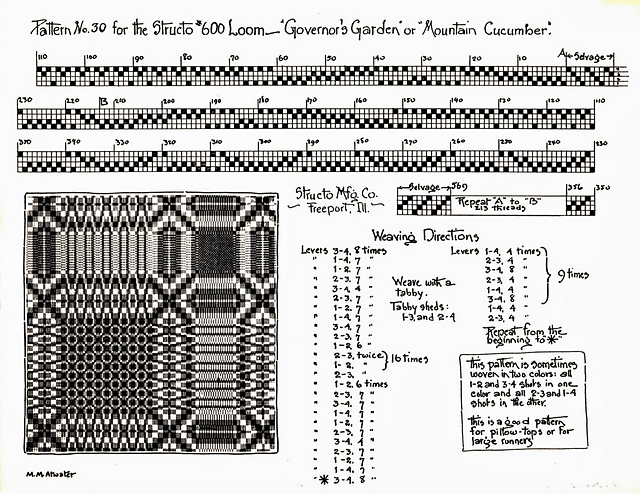 Pattern No. 30 for the Structo #600 Loom — "Governor's Garden" or "Mountain Cucumber".
110 100 90 80 70 60 50 40 30 20 10 A Selvage
230 220 B 210 200 190 180 170 160 150 140 130 120 110
340 330 320 310 300 290 280 270 260 250 240 230
Structo Mfg. Co.
Freeport, Ill.
Selvage 569 356 350
Repeat "A" to "B"
213 threads
Weaving Directions
Levers 3-4, 8 times
" 1-4, 7 "
" 1-2, 7 "
" 2-3, 7 "
" 3-4, 4 "
" 2-3, 7 "
" 1-2, 7 "
" 1-4, 7 "
" 3-4, 7 "
" 2-3, 7 "
" 1-2, 6 "
" 2-3, twice
" 1-2, "
" 2-3, "
16 times
" 1-2, 6 times
" 2-3, 7 "
" 3-4, 7 "
" 1-4, 7 "
" 1-2, 7 "
" 2-3, 7 "
" 3-4, 4 "
" 2-3, 7 "
" 1-2, 7 "
" 1-4, 7 "
* 3-4, 8 "
Weave with a
tabby.
Tabby sheds:
1-3, and 2-4
Levers 1-4, 4 times
" 2-3, 4 "
" 3-4, 8 "
" 2-3, 4 "
" 1-4, 4 "
" 3-4, 8 "
" 1-4, 4 "
" 2-3, 4 "
9 times
Repeat from the
beginning to *
This pattern is sometimes
woven in two colors: all
1-2 and 3-4 shots in one
color and all 2-3 and 1-4
shots in the other.
This is a good pattern
for pillow-tops or for
large runners
M.M. Atwater